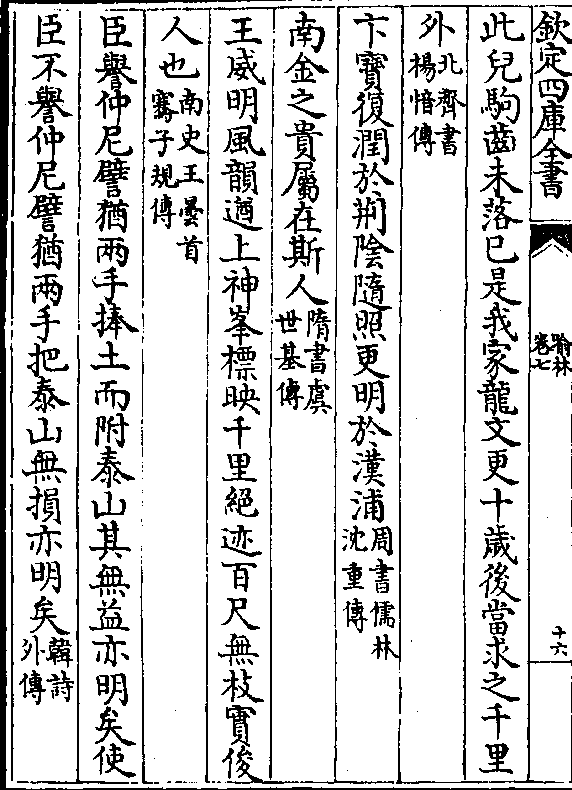 欽定四庫全書
喻林
卷七
十六
此兒駒齒未落已是我家龍文更十歲後當求之千里
外北齊書
楊愔傳
卞寶復潤於荆陰隨照更明於漢浦周書儒林
沈重傳
南金之貴屬在斯人隋書虞
世基傳
王威明風韻遒上神峯標映千里絕迹百尺無枝實俊
人也南史王曇首
騫子規傳
臣譽仲尼譬猶兩手捧土而附泰山其無益亦明矣使
臣不譽仲尼譬猶兩手把泰山無損亦明矣韓詩
外傳